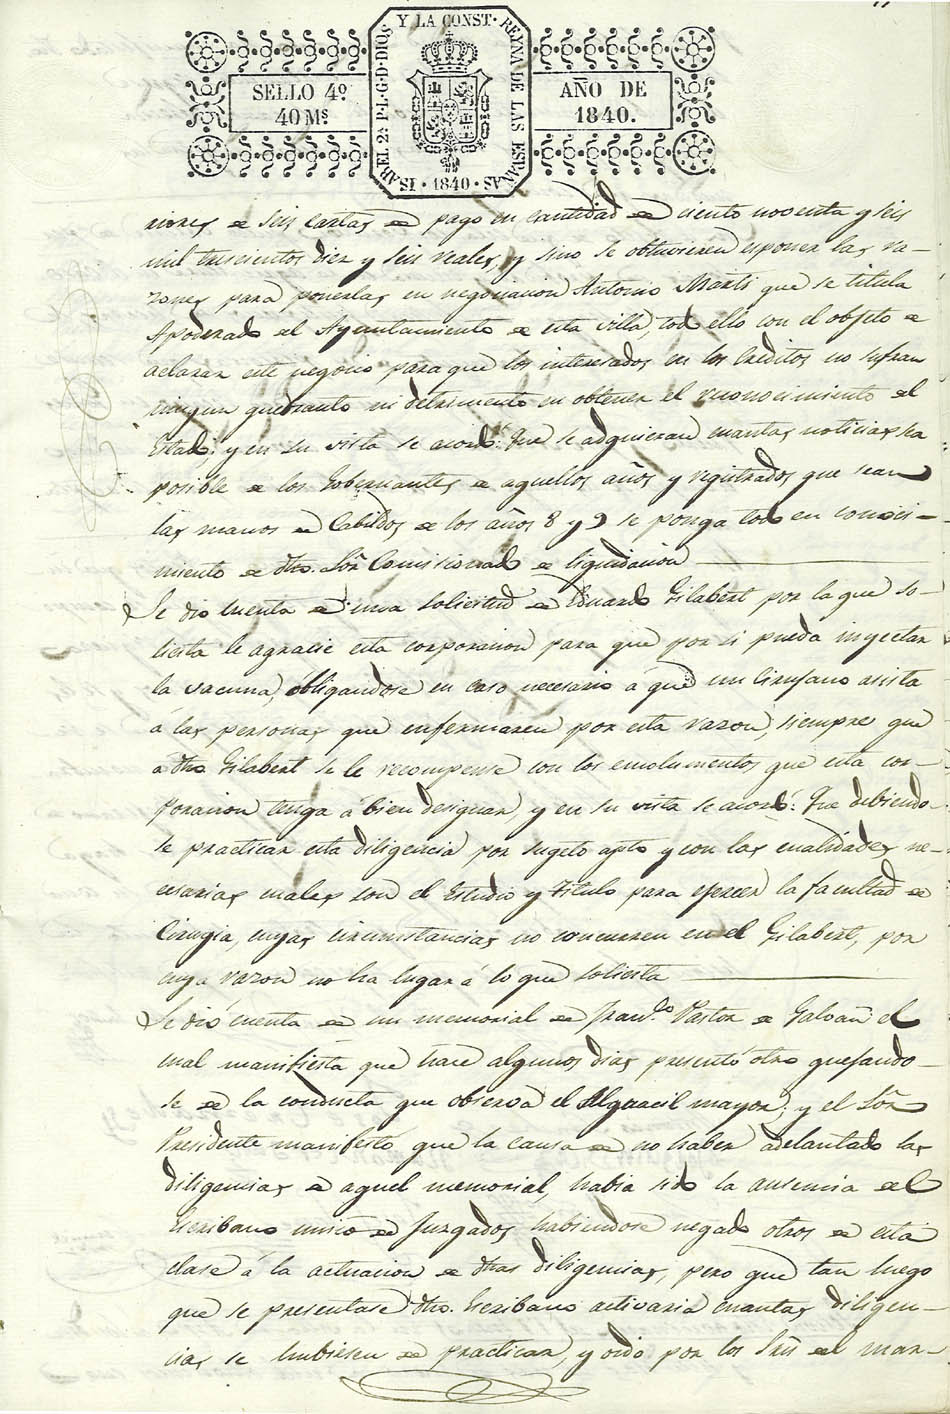 ISABEL 2ª P.L.G.D.DIOS Y LA CONST. REYNA DE LAS ESPAÑAS
SELLO 4º
40 Mˢ
AÑO DE
1840.
· 1840 ·
ciones de seis cartas de pago en cantidad de ciento noventa y seis
mil trescientos diez y seis reales, y sino se obtuvieren esponer las ra-
zones para ponerlas en negociacion Antonio Martí que se titula
Apoderado del Ayuntamiento de esta villa, todo ello con el objeto de
aclarar este negocio para que los interesados en los Créditos no sufran
ningun quebranto ni detrimento en obtener el reconocimiento del
Estado; y en su vista se acordó: Que se adquieran cuantas noticias ha
posible de los Gobernantes de aquellos años y registrados que sean
las manos de Cabildos de los años 8 y 9 se ponga todo en conoci-
miento de dho. Sõr Comisionado de liquidacion
Se dio cuenta de una solicitud de Eduardo Gilabert por la que so-
licita le agracie esta corporacion para que por si pueda inyectar
la vacuna, obligandose en caso necesario á que un Cirujano asista
á las personas que enfermaren por esta razon, siempre que
á dho Gilabert se le recompense con los emolumentos que esta cor-
poracion tenga á bien designar, y en su vista se acordó: Que debiendo-
se practicar esta diligencia por sugeto apto y con las cualidades ne-
cesarias cuales son el Estudio y Titulo para ejercer la facultad de
Cirugia, cuyas circunstancias no concurren en el Gilabert, por
cuya razon no ha lugar á lo que solicita
Se dió cuenta de un memorial de Franco. Pastor de Galvañ el
cual manifiesta que hace algunos dias presentó otro quejando-
se de la conducta que observa el Alguacil mayor; y el Sõr
Presidente manifestó que la causa de no haber adelantado las
diligencias de aquel memorial, habia sido la ausencia del
Escribano unico de Juzgados, habiendose negado otros de esta
clase á la actuacion de dhas diligencias, pero que tan luego
que se presentase dho. Escribano activaria cuantas diligen-
cias se hubiesen de practicar, y oido por los Sres del mar-